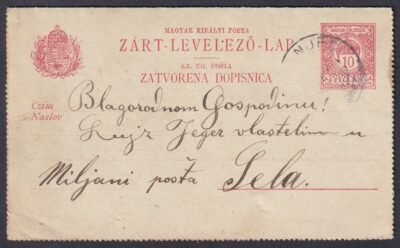 MAGYAR KIRÁLYI POSTA
ZÁRT-LEVELEZŐ-LAP
KR. UG. POŠTA
ZATVORENA DOPISNICA
10
Czím
Naslov
Blagorodnom Gospodinu!
Lujz Jeger vlastelim u
Miljani pošta Sela.